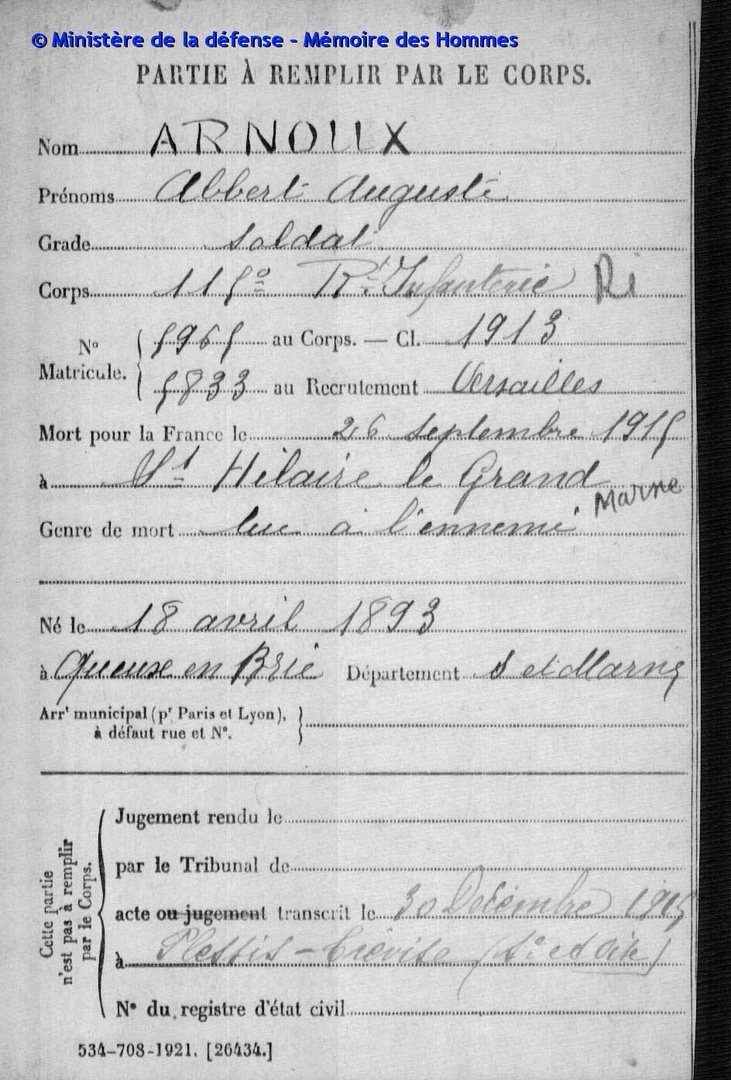 © Ministère de la défense - Mémoire des Hommes
PARTIE À REMPLIR PAR LE CORPS.
Nom ARNOUX
Prénoms Albert Auguste
Grade Soldat
Corps 115e Rt Infanterie RI
N° Matricule. 5965 au Corps. — Cl. 1913
5833 au Recrutement Versailles
Mort pour la France le 26 Septembre 1915
à St Hilaire le Grand
Marne
Genre de mort tué à l'ennemi
Né le 18 avril 1893
à Queue en Brie Département S et Marne
Arrt municipal (pr Paris et Lyon), à défaut rue et N°.
Cette partie n'est pas à remplir par le Corps.
Jugement rendu le
par le Tribunal de
acte ou jugement transcrit le 30 Décembre 1915
à Plessis-Trévise (S. et Oise)
N° du registre d'état civil
534-708-1921. [26434.]